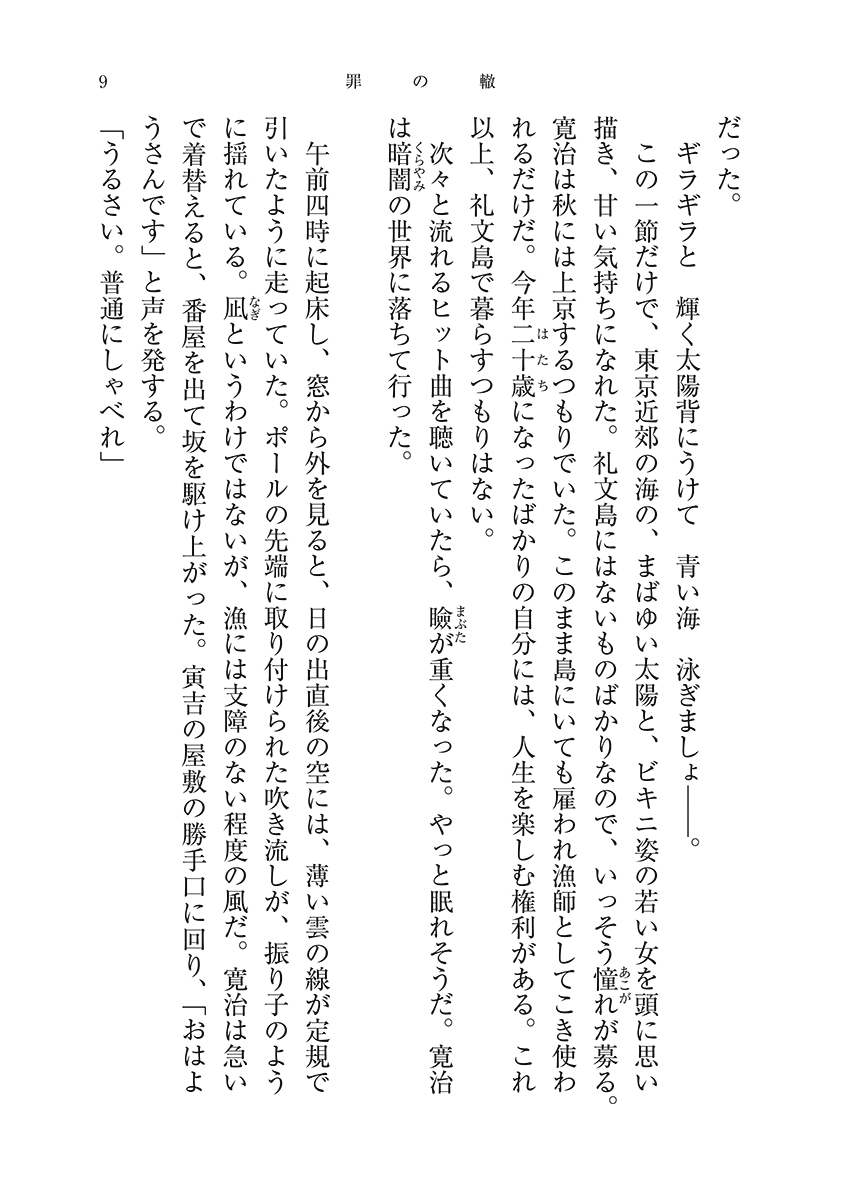 罪の轍
9
だった。
ギラギラと　輝く太陽背にうけて　青い海　泳ぎましょ――。
この一節だけで、東京近郊の海の、まばゆい太陽と、ビキニ姿の若い女を頭に思い
描き、甘い気持ちになれた。礼文島にはないものばかりなので、いっそう憧れが募る。
寛治は秋には上京するつもりでいた。このまま島にいても雇われ漁師としてこき使わ
れるだけだ。今年二十歳になったばかりの自分には、人生を楽しむ権利がある。これ
以上、礼文島で暮らすつもりはない。
次々と流れるヒット曲を聴いていたら、瞼が重くなった。やっと眠れそうだ。寛治
は暗闇の世界に落ちて行った。
午前四時に起床し、窓から外を見ると、日の出直後の空には、薄い雲の線が定規で
引いたように走っていた。ポールの先端に取り付けられた吹き流しが、振り子のよう
に揺れている。凪というわけではないが、漁には支障のない程度の風だ。寛治は急い
で着替えると、番屋を出て坂を駆け上がった。寅吉の屋敷の勝手口に回り、「おはよ
うさんです」と声を発する。
「うるさい。普通にしゃべれ」